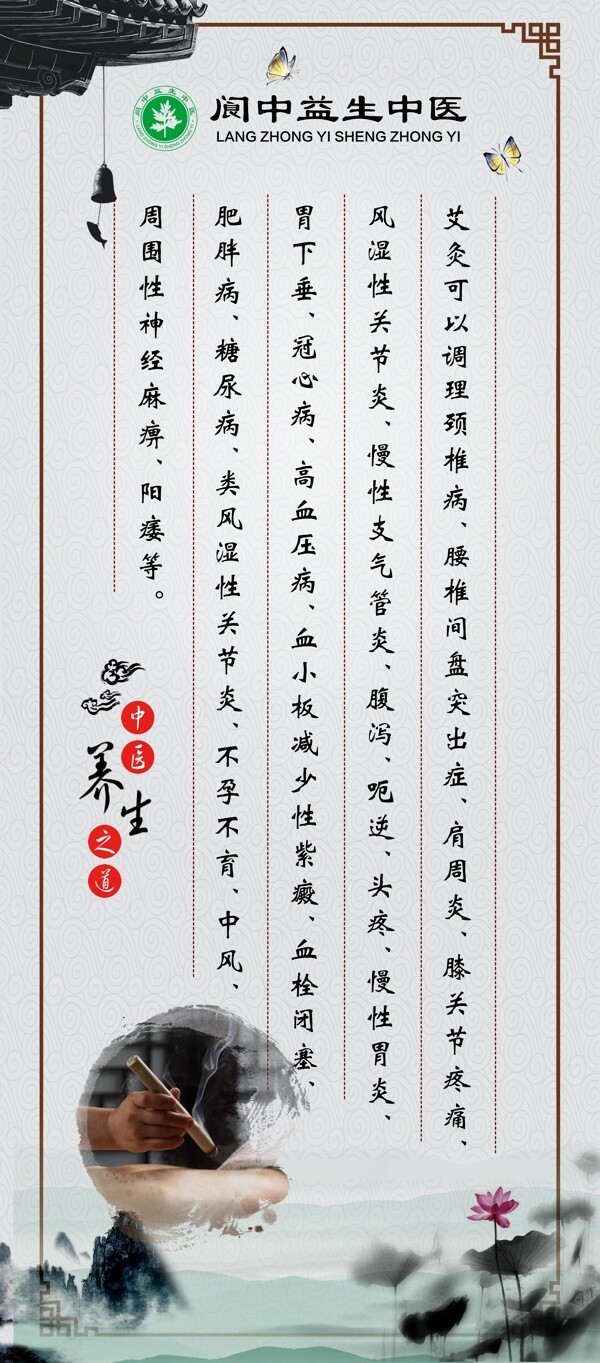 阆中益生中医
LANG ZHONG YI SHENG ZHONG YI
阆中益生中医
LANG ZHONG YI SHENG ZHONG YI
艾灸可以调理颈椎病、腰椎间盘突出症、肩周炎、膝关节疼痛、
风湿性关节炎、慢性支气管炎、腹泻、呃逆、头疼、慢性胃炎、
胃下垂、冠心病、高血压病、血小板减少性紫癜、血栓闭塞、
肥胖病、糖尿病、类风湿性关节炎、不孕不育、中风、
周围性神经麻痹、阳痿等。
中医
养生
之道